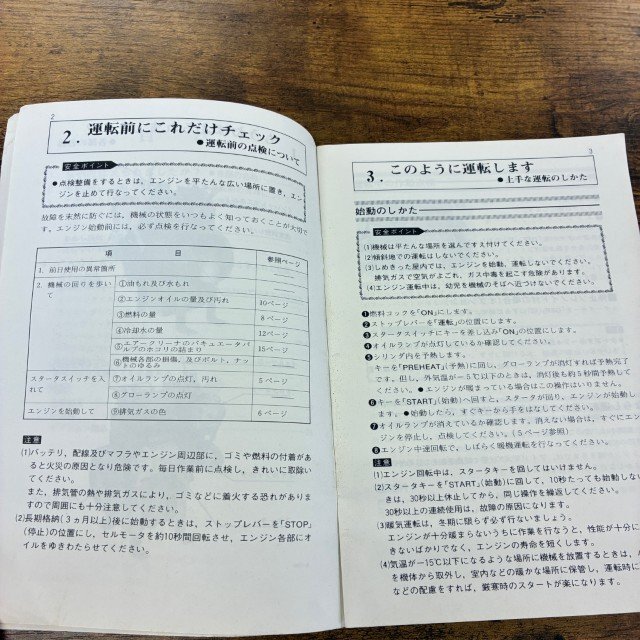 2
2. 運転前にこれだけチェック
●運転前の点検について
安全ポイント
●点検整備をするときは、エンジンを平たんな広い場所に置き、エン
ジンを止めて行なってください。
故障を未然に防ぐには、機械の状態をいつもよく知っておくことが大切で
す。エンジン始動前には、必ず点検を行なってください。
項 目 参照ページ
1. 前日使用の異常箇所
2. 機械の回りを歩い
て
①油もれ及び水もれ
②エンジンオイルの量及び汚れ 10ページ
③燃料の量 8ページ
④冷却水の量 12ページ
⑤エアークリーナのバキュエータバ
ルブのホコリの詰まり 15ページ
⑥機械各部の損傷、及びボルト、ナット
のゆるみ
スタータスイッチを入
れて
⑦オイルランプの点灯、汚れ 5ページ
⑧グローランプの点灯
エンジンを始動して ⑨排気ガスの色 6ページ
注意
(1)バッテリ、配線及びマフラやエンジン周辺部に、ゴミや燃料の付着があ
ると火災の原因となり危険です。毎日作業前に点検し、きれいに取除い
てください。
また、排気管の熱や排気ガスにより、ゴミなどに着火する恐れがありま
すので周囲にも十分注意してください。
(2)長期格納(3ヵ月以上)後に始動するときは、ストップレバーを「STOP」
(停止)の位置にし、セルモータを約10秒間回転させ、エンジン各部にオ
イルをゆきわたらせてください。
3
3. このように運転します
●上手な運転のしかた
始動のしかた
安全ポイント
(1)機械は平たんな場所を選んですえ付けてください。
(2)傾斜地での運転はしないでください。
(3)しめきった屋内では、エンジンを始動、運転しないでください。
排気ガスで空気がよごれ、ガス中毒を起こす危険があります。
(4)エンジン運転中は、幼児を機械のそばへ近づけないでください。
❶燃料コックを「ON」にします。
❷ストップレバーを「運転」の位置にします。
❸スタータスイッチにキーを差し込み「ON」の位置にします。
❹オイルランプが点灯しているか確認してください。
❺シリンダ内を予熱します。
キーを「PREHEAT」(予熱)に回し、グローランプが消灯すれば予熱完了
です。但し、外気温が−5℃以下のときは、消灯後も約5秒間予熱して
ください。 ●エンジンが暖まっている場合はこの操作はいりません。
❻キーを「START」(始動)へ回すと、スタータが回り、エンジンが始動し
ます。●始動したら、すぐキーから手をはなしてください。
❼オイルランプが消えているか確認してください。消えない場合は、すぐにエン
ジンを停止し、点検してください。(5ページ参照)
❽エンジン中速回転で、しばらく暖機運転を行なってください。
注意
(1)エンジン回転中は、スタータキーを回してはいけません。
(2)スタータキーを「START」(始動)に回して、10秒たっても始動しない
ときは、30秒以上休止してから、同じ操作を繰返してください。
30秒以上の連続使用は、故障の原因になります。
(3)暖気運転は、冬期に限らず必ず行ないましょう。
エンジンが十分暖まらないうちに作業を行なうと、性能が十分に
きないばかりでなく、エンジンの寿命を短くします。
(4)気温が−15℃以下になるような場所に機械を放置するときは、
を機体から取外し、室内などの暖かな場所に保管し、運転時に
などの配慮をすれば、厳寒時のスタートが楽になります。